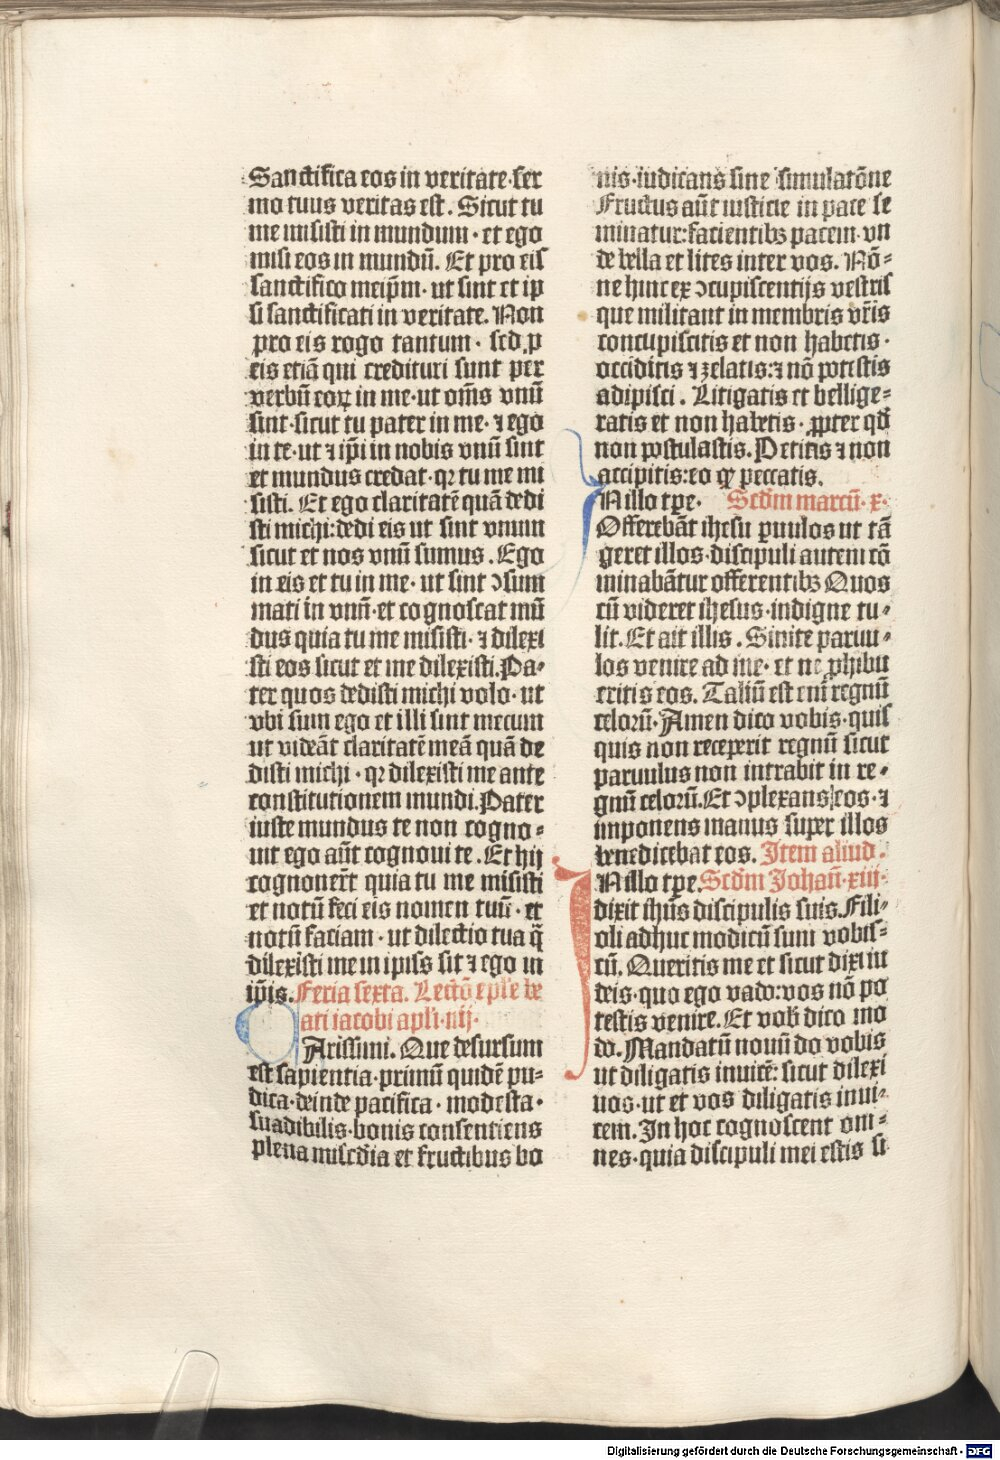 Sanctifica eos in veritate·ser
mo tuus veritas est. Sicut tu
me misisti in mundum·et ego
misi eos in mundū. Et pro eis
sanctifico meip̄m·ut sint et ip
si sanctificati in veritate. Non
pro eis rogo tantum· sed ꝓ
eis etiā qui credituri sunt per
verbū eoꝝ in me·ut om̄s vnū
sint·sicut tu pater in me·⁊ ego
in te·ut ⁊ ip̄i in nobis vnū sint
et mundus credat·qꝛ tu me mi
sisti. Et ego claritatē quā dedi
sti michi:dedi eis ut sint vnum
sicut et nos vnū sumus. Ego
in eis et tu in me·ut sint ↄsum
mati in vnū·et cognoscat mū
dus quia tu me misisti·⁊ dilexi
sti eos sicut et me dilexisti. Pa-
ter quos dedisti michi volo·ut
vbi sum ego et illi sint mecum
ut videāt claritatē meā quā de
disti michi·qꝛ dilexisti me ante
constitutionem mundi. Pater
iuste mundus te non cogno-
uit ego aūt cognoui te. Et hij
cognouer̄t quia tu me misisti
et notū feci eis nomen tuū·et
notū faciam·ut dilectio tua q̄
dilexisti me in ipsis sit ⁊ ego in
ip̄is. Feria sexta. Lectō ep̄le be
ati iacobi apl̄i·iij·
Arissimi. Que desursum
est sapientia·primū quidē pu-
dica·deinde pacifica·modesta·
suadibilis·bonis consentiens
plena misc̄dia et fructibus bo
nis·iudicans sine simulatōne
Fructus aūt iusticie in pace se
minatur:facientibꝫ pacem·vn
de bella et lites inter vos. Nō-
ne hinc ex ↄcupiscentijs vestris
que militant in membris vr̄is
concupiscitis et non habetis·
occiditis ⁊ zelatis:⁊ nō potestis
adipisci. Litigatis et bellige-
ratis et non habetis· ꝓpter qd̄
non postulastis. Petitis ⁊ non
accipitis:eo qꝙ peccatis.
Nillo tꝑe. Scd̄m marcū·x·
Offerebāt ihesu ꝑuulos ut tā
geret illos·discipuli autem cō
minabātur offerentibꝫ Quos
cū videret ihesus·indigne tu-
lit. Et ait illis. Sinite paruu-
los venire ad me·et ne ꝓhibu
eritis eos. Taliū est eni regnū
celorū. Amen dico vobis·quis
quis non receperit regnū sicut
paruulus non intrabit in re-
gnū celorū. Et ↄplexans eos·⁊
imponens manus super illos
benedicebat eos. Item aliud.
Nillo tꝑe. Scd̄m Johan̄·xiii·
dixit ihūs discipulis suis. Fili-
oli adhuc modicū sum vobis-
cū. Queritis me et sicut dixi iu
deis·quo ego vado:vos nō po
testis venire. Et vob̄ dico mo
do. Mandatū nouū do vobis
ut diligatis inuicē: sicut dilexi
uos·ut et vos diligatis inui-
cem. In hoc cognoscent om-
nes·quia discipuli mei estis si
Digitalisierung gefördert durch die Deutsche Forschungsgemeinschaft - DFG